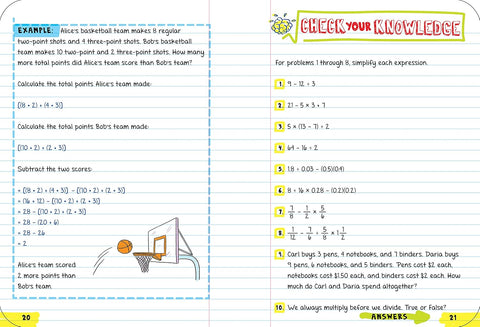 EXAMPLE: Alice's basketball team makes 8 regular
two-point shots and 4 three-point shots. Bob's basketball
team makes 10 two-point and 2 three-point shots. How many
more total points did Alice's team score than Bob's team?
Calculate the total points Alice's team made:
[(8 • 2) + (4 • 3)]
Calculate the total points Bob's team made:
[(10 • 2) + (2 • 3)]
Subtract the two scores:
= [(8 • 2) + (4 • 3)] - [(10 • 2) + (2 • 3)]
= (16 + 12) - [(10 • 2) + (2 • 3)]
= 28 - [(10 • 2) + (2 • 3)]
= 28 - (20 + 6)
= 28 - 26
= 2
Alice's team scored
2 more points than
Bob's team.
20
CHECK YOUR KNOWLEDGE
For problems 1 through 8, simplify each expression.
1. 9 - 12 ÷ 3
2. 21 - 5 × 3 + 7
3. 5 × (13 - 7) ÷ 2
4. 64 - 16 ÷ 2
5. 1.8 ÷ 0.03 - (0.5)(0.4)
6. 8 ÷ 16 × 0.28 - (0.2)(0.2)
7. 7/8 - 1/2 × 5/6
8. 1/12 - 7/6 ÷ 5/8 × 1 1/2
9. Carl buys 3 pens, 4 notebooks, and 7 binders. Daria buys
9 pens, 6 notebooks, and 5 binders. Pens cost $2 each,
notebooks cost $1.50 each, and binders cost $2 each. How
much did Carl and Daria spend altogether?
10. We always multiply before we divide. True or False?
ANSWERS
21